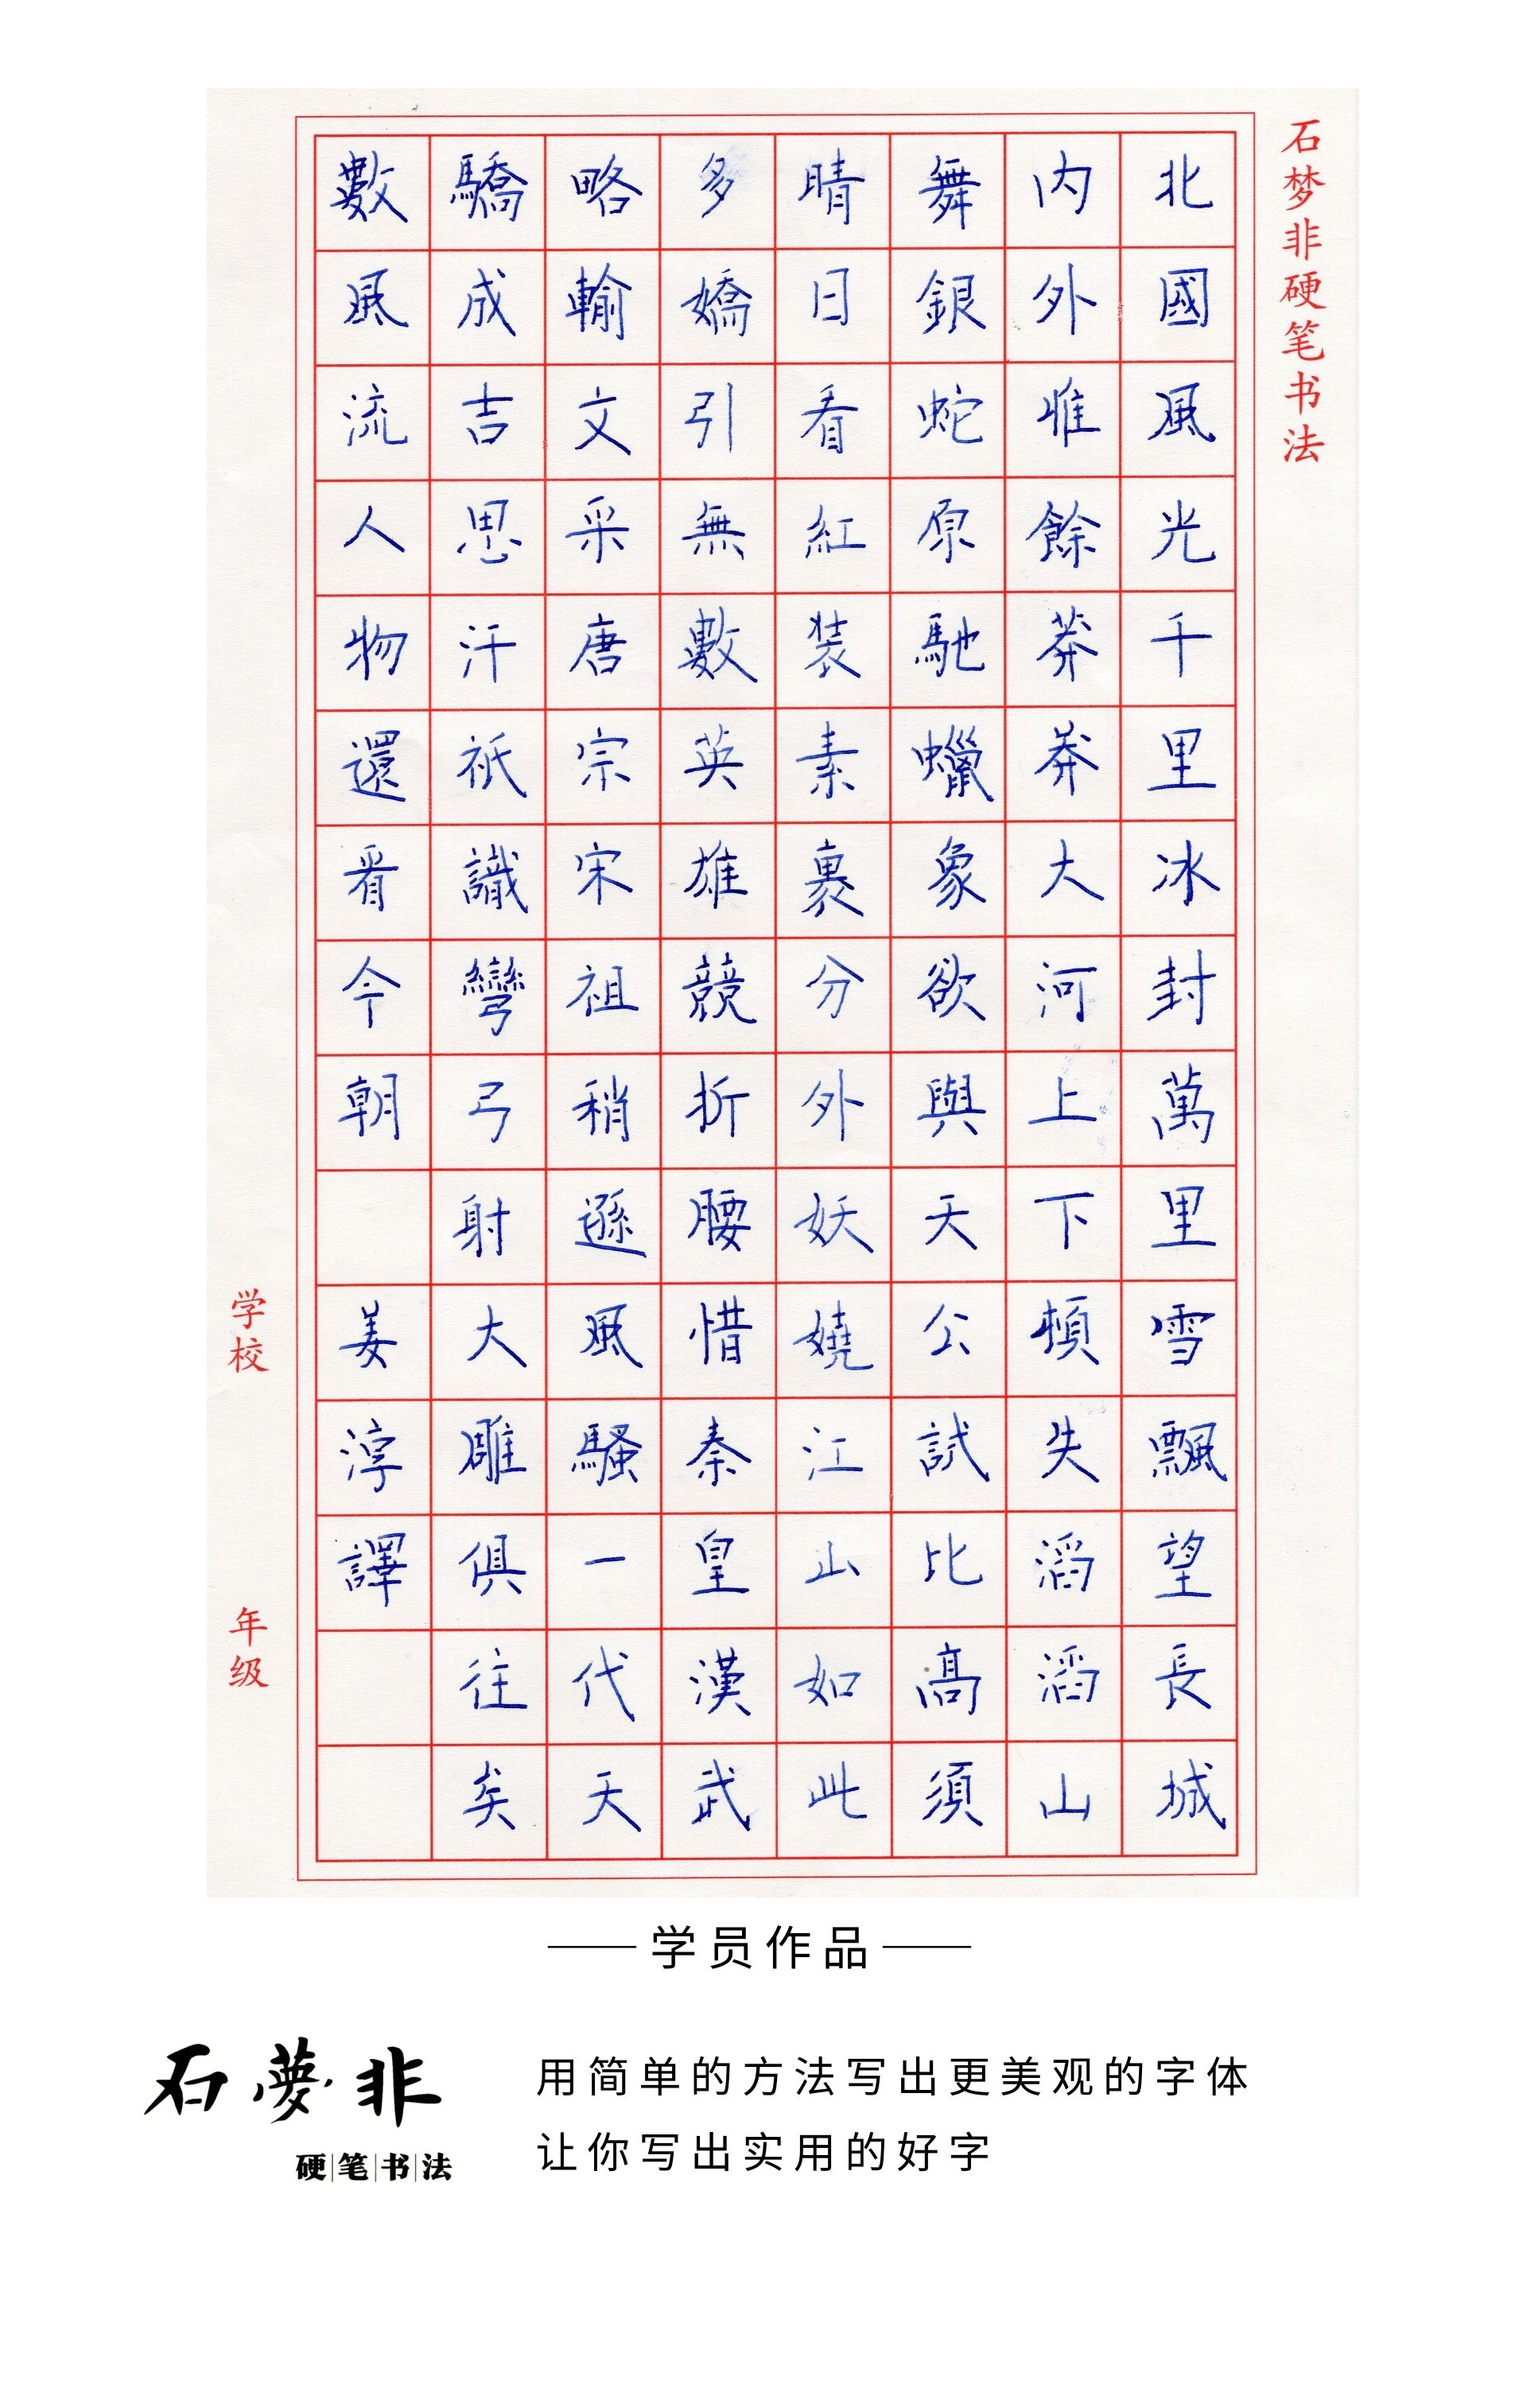 石梦非硬笔书法
北國風光千里冰封萬里雪飄望長城
内外惟餘莽莽大河上下頓失滔滔山
舞銀蛇原馳蠟象欲與天公試比高須
晴日看紅装素裹分外妖嬈江山如此
多嬌引無數英雄競折腰惜秦皇漢武
略輸文采唐宗宋祖稍遜風騷一代天
驕成吉思汗祇識彎弓射大雕俱往矣
數風流人物還看今朝 姜淳譯
学校
年级
学员作品
石夢非
硬笔书法
用简单的方法写出更美观的字体
让你写出实用的好字